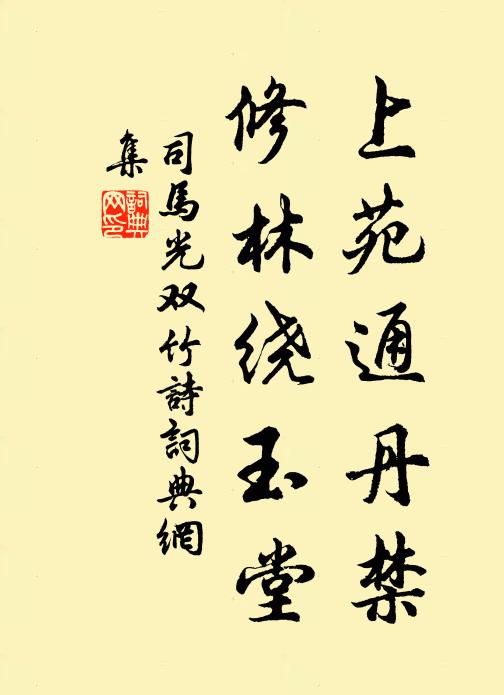 上苑通丹禁
修林绕玉堂
司馬光双竹詩詞典網
集
詞典網印